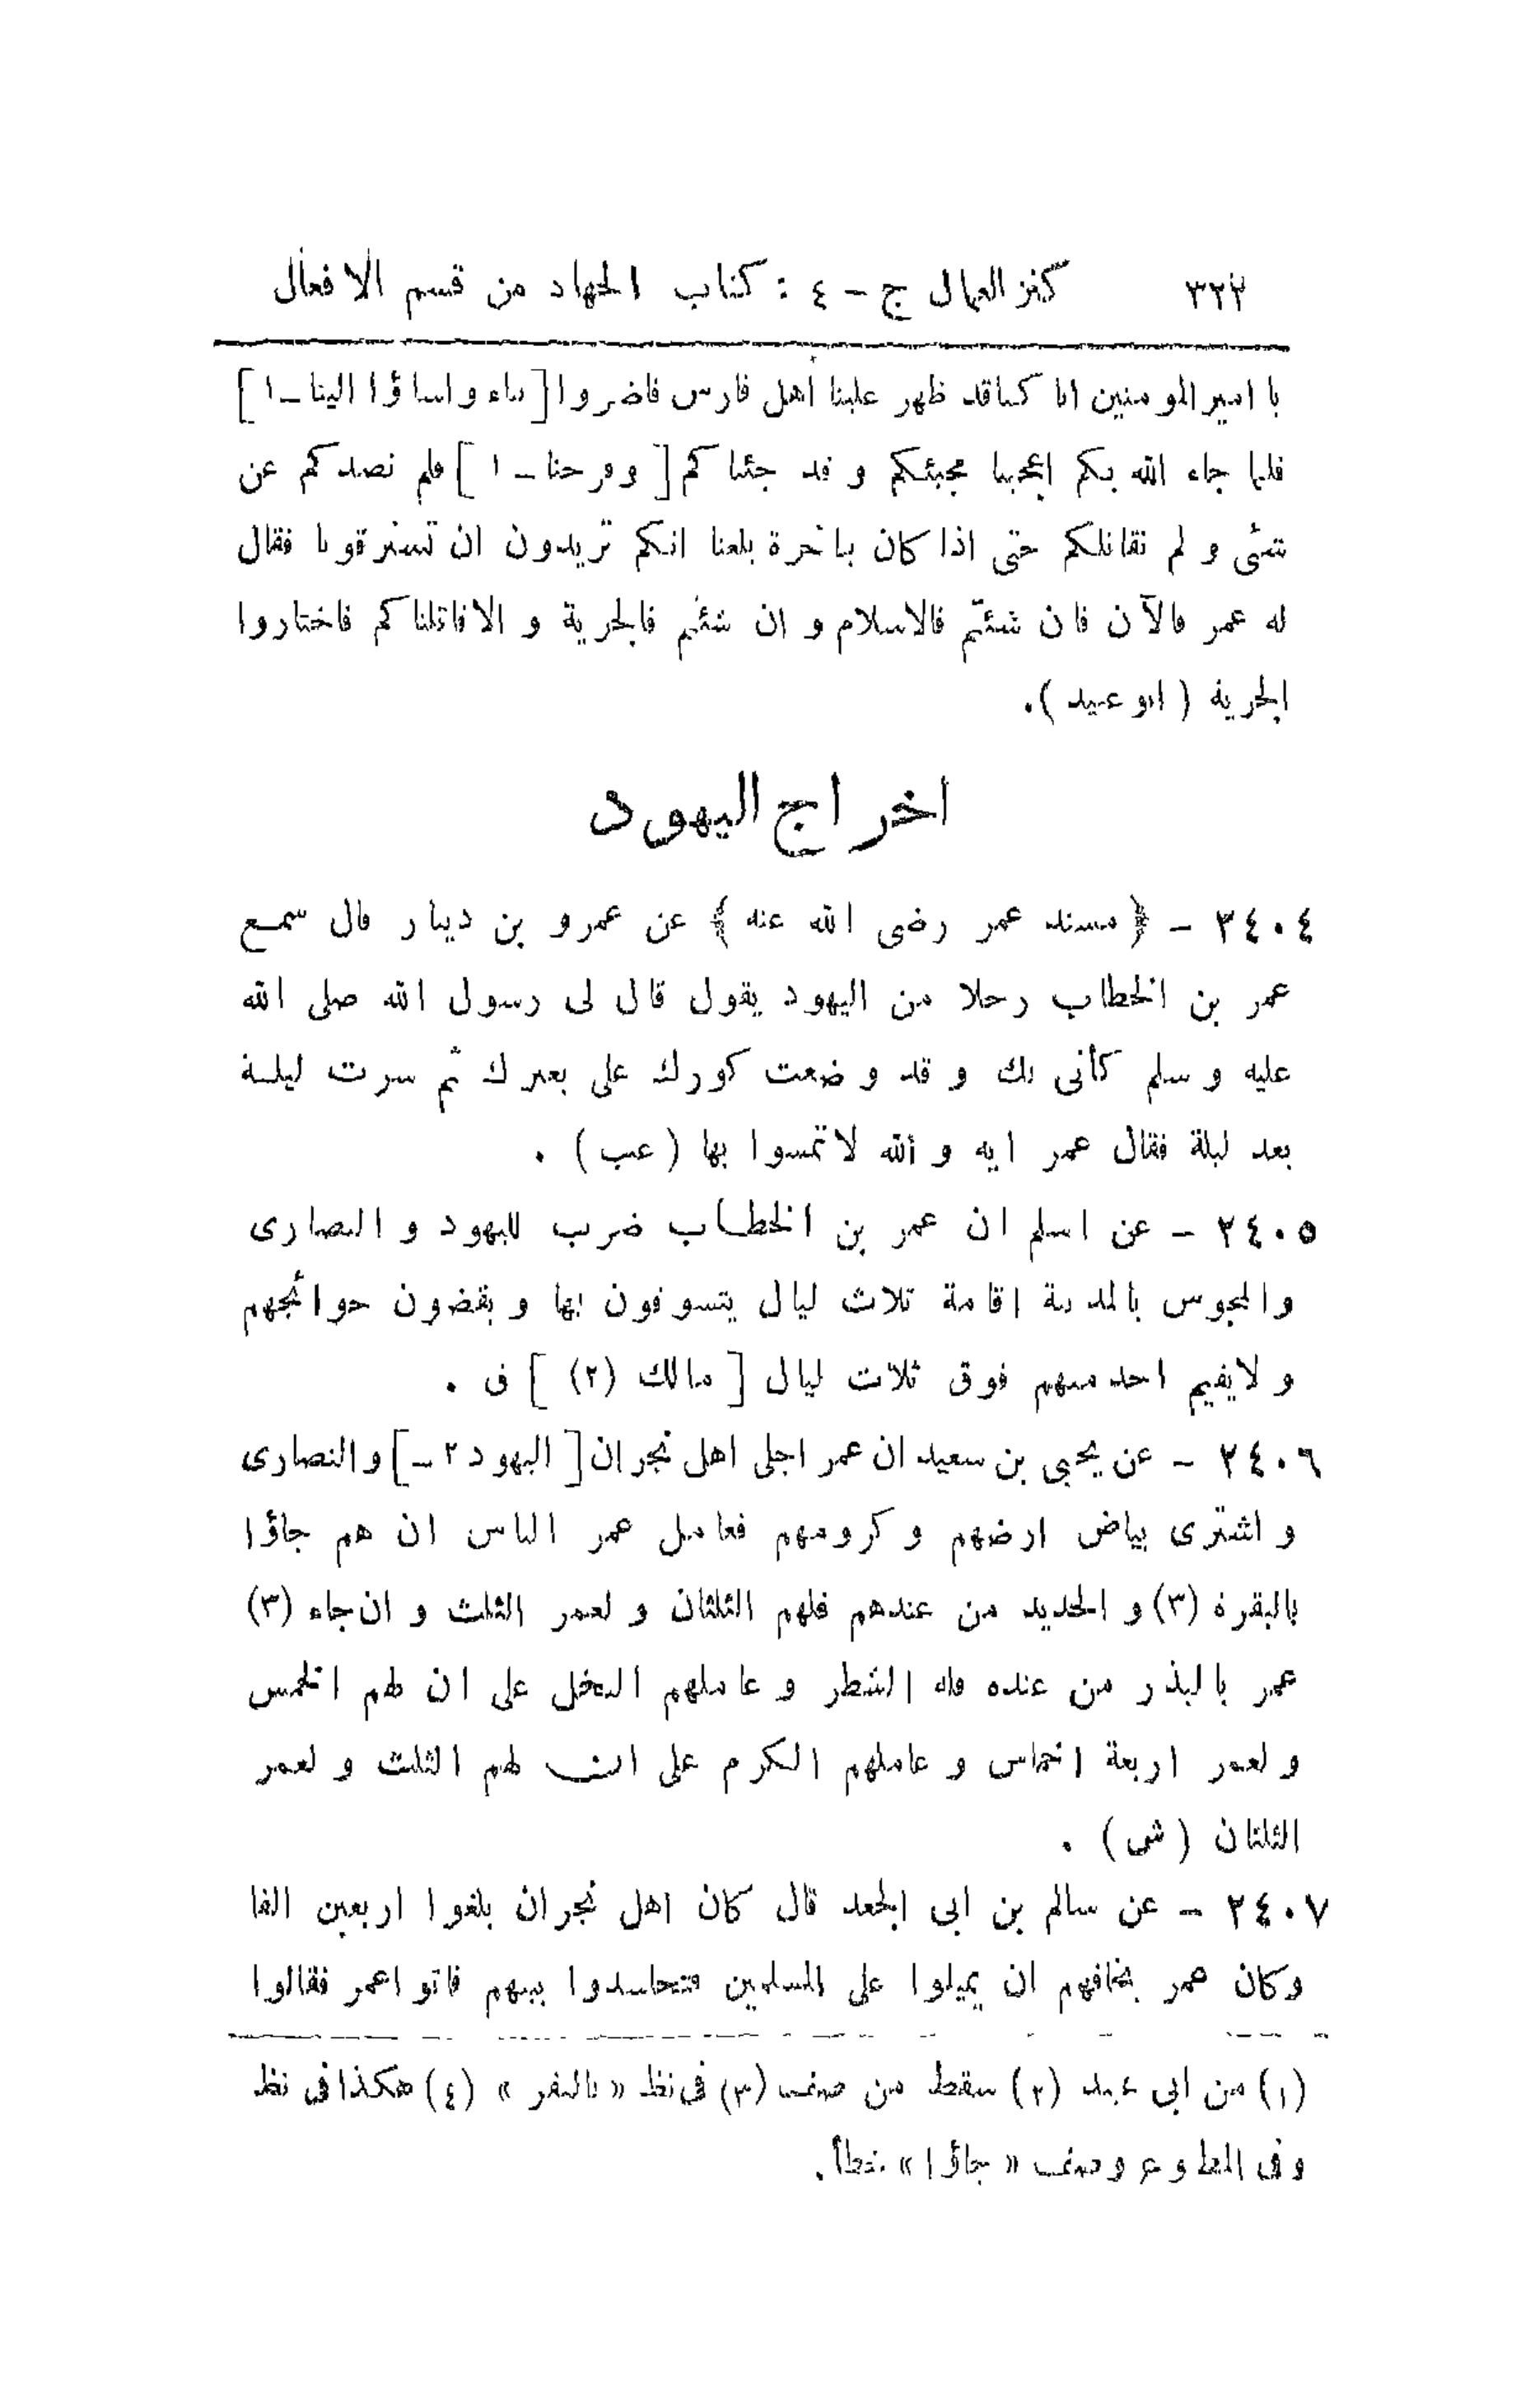 ٣٢٢ كنز العمال ج - ٤ : كتاب الجهاد من قسم الافعال
يا امير المومنين انا كنا قد ظهر علينا اهل فارس فاضروا [بنا و اساؤا الينا - ١]
فلما جاء الله بكم اعجبنا مجيئكم و قد جئناكم [ و فرحنا - ١ ] فلم نصدكم عن
شئى و لم نقاتلكم حتى اذا كان باخرة بلغنا انكم تريدون ان تسترقونا فقال
له عمر فالآن فان شئتم فالاسلام و ان شئتم فالجزية و الا قاتلناكم فاختاروا
الجزية ( ابو عبيد ).
اخراج اليهود
٢٤٠٤ - ﴿ مسند عمر رضى الله عنه ﴾ عن عمرو بن دينار قال سمع
عمر بن الخطاب رجلا من اليهود يقول قال لى رسول الله صلى الله
عليه و سلم كأنى بك و قد وضعت كورك على بعيرك ثم سرت ليلة
بعد ليلة فقال عمر ايه و الله لا تمسوا بها ( عب ) .
٢٤٠٥ - عن اسلم ان عمر بن الخطاب ضرب لليهود و النصارى
و المجوس بالمدينة اقامة ثلاث ليال يتسوقون بها و يقضون حوائجهم
و لا يقيم احد منهم فوق ثلاث ليال [ مالك (٢) ] ق .
٢٤٠٦ - عن يحيى بن سعيد ان عمر اجلى اهل نجران [ اليهود ٢ - ] و النصارى
و اشترى بياض ارضهم و كرومهم فعامل عمر الناس ان هم جاؤا
بالبقرة (٣) و الحديد من عندهم فلهم الثلثان و لعمر الثلث و ان جاء (٣)
عمر بالبذر من عنده فله الشطر و عاملهم النخل على ان لهم الخمس
و لعمر اربعة اخماس و عاملهم الكرم على ان لهم الثلث و لعمر
الثلثان ( ش ) .
٢٤٠٧ - عن سالم بن ابى الجعد قال كان اهل نجران بلغوا اربعين الفا
وكان عمر يخافهم ان يميلوا على المسلمين فتحاسدوا بينهم فاتوا عمر فقالوا
(١) من ابى عبيد (٢) سقط من صف (٣) فى نظ « بالبقر » (٤) هكذا فى نظ
و فى المطبوع وصف « جاؤا » خطأ .